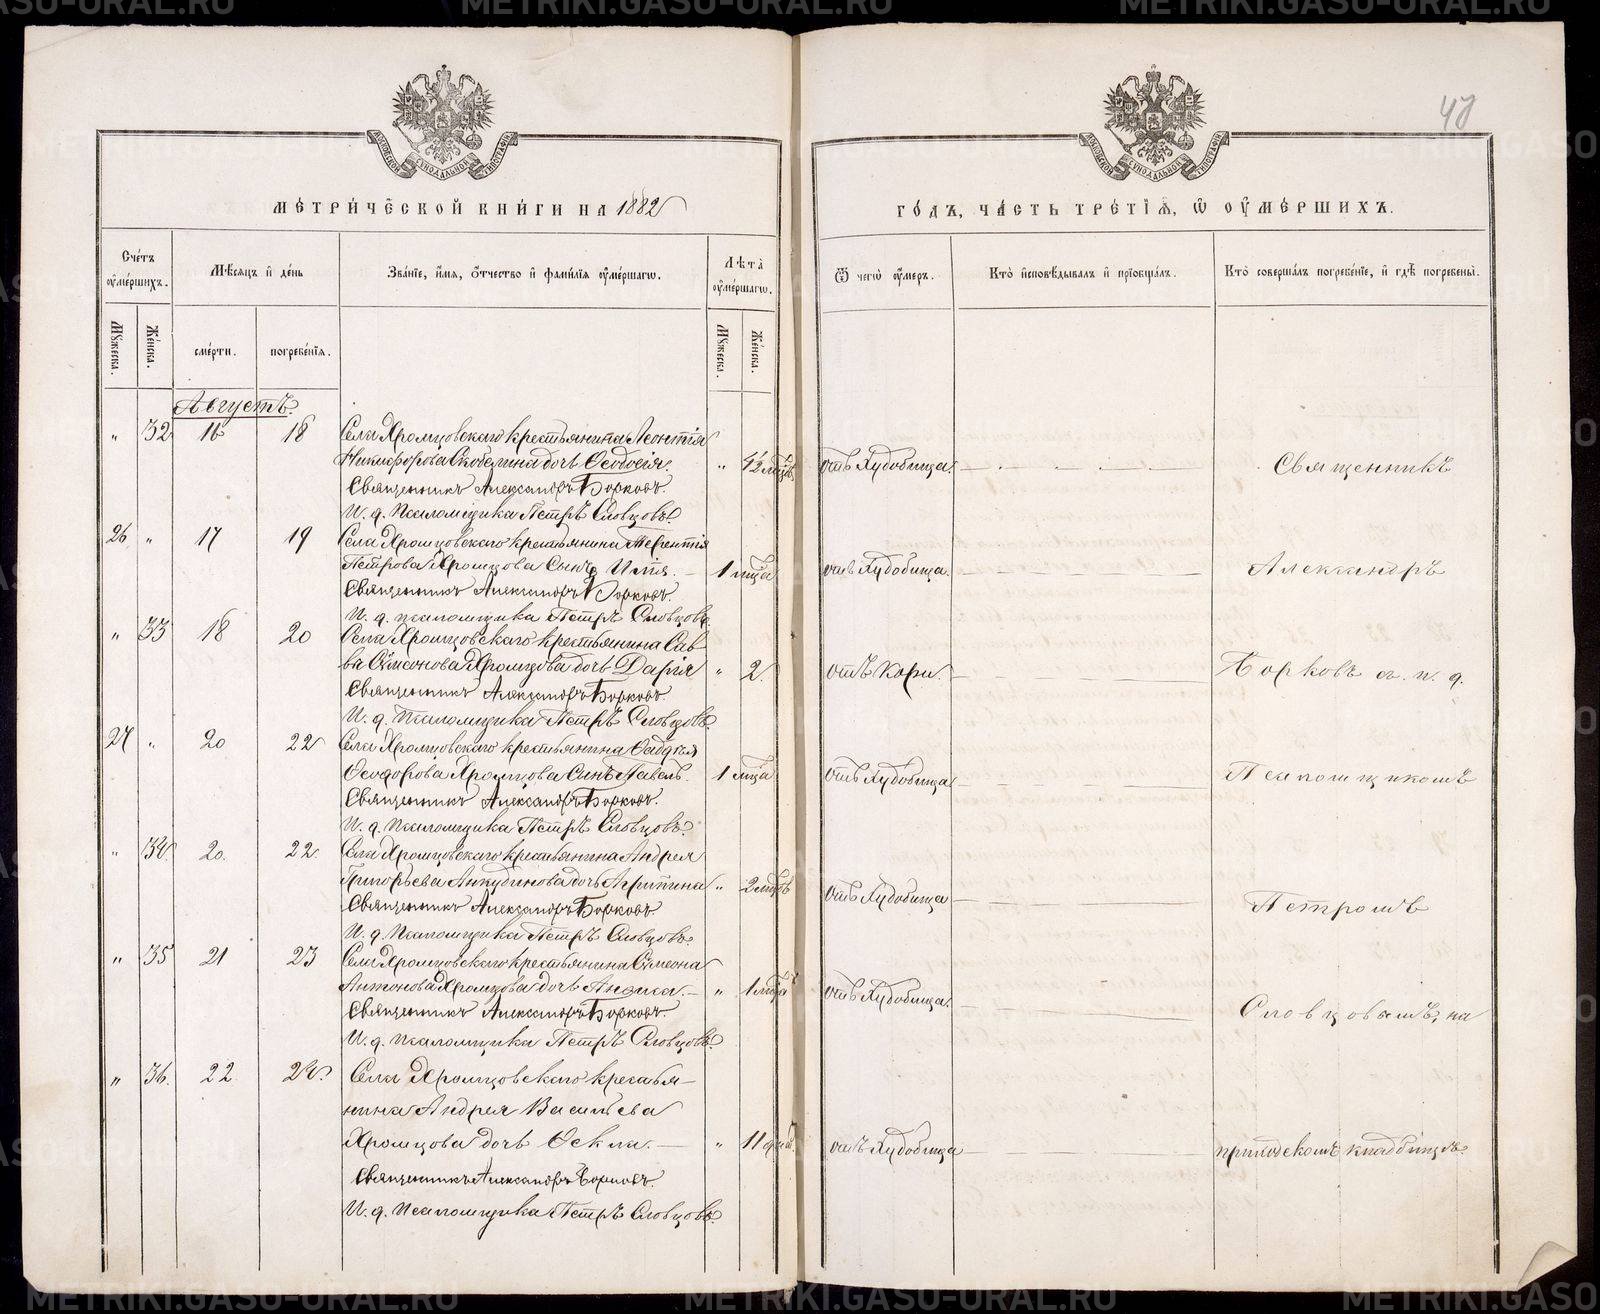 METRIKI.GASO-URAL.RU
47
МОСКОВСКОЙ СУНОДАЛЬНОЙ ТИПОГРАФІИ
МОСКОВСКОЙ СУНОДАЛЬНОЙ ТИПОГРАФІИ
МЕТРИЧЕСКОЙ КНИГИ НА 1882
ГОДЪ, ЧАСТЬ ТРЕТІѦ, Ѡ ОУМЕРШИХЪ.
Счетъ оумершихъ.
Мѣсяцъ и день
Званіе, имя, отчество и фамилія оумершагѡ.
Лѣта оумершагѡ.
Ѿ чегѡ оумеръ.
Кто исповѣдывалъ и пріобщалъ.
Кто совершалъ погребеніе, и гдѣ погребены.
Мꙋжеска.
Женска.
смерти.
погребенія.
Мꙋжеска.
Женска.
Августъ.
" 32 16 18 Села Хромцовскаго крестьянина Леонтія
Никифорова Скобелина дочь Ѳеодосія. " 4½ мѣсц. отъ Худобища. Священникъ
Священникъ Александръ Борковъ.
И. д. Псаломщика Петръ Словцовъ.
26 " 17 19 Села Хромцовскаго крестьянина Терентія
Петрова Хромцова Сынъ Илія. 1 мѣца отъ Худобища. Александръ
Священникъ Александръ Борковъ.
И. д. псаломщика Петръ Словцовъ.
" 33 18 20 Села Хромцовскаго крестьянина Сав-
ва Сѵмеонова Хромцова дочь Дарія " 2. отъ Кори. Борковъ съ и. д.
Священникъ Александръ Борковъ
И. д. Псаломщика Петръ Словцовъ.
27 " 20 22 Села Хромцовскаго крестьянина Ѳаддѣя
Ѳеодорова Хромцова Сынъ Павелъ. 1 мѣца отъ Худобища Псаломщикомъ
Священникъ Александръ Борковъ.
И. д. Псаломщика Петръ Словцовъ.
" 34. 20. 22. Села Хромцовскаго крестьянина Андрея
Григорьева Анкудинова дочь Агрипина " 2 мѣсцъ отъ Худобища Петромъ
Священникъ Александръ Борковъ
И. д. Псаломщика Петръ Словцовъ.
" 35 21 23 Села Хромцовскаго крестьянина Сѵмеона
Антонова Хромцова дочь Анѳиса. " 1 мѣца отъ Худобища. Словцовымъ, на
Священникъ Александръ Борковъ.
И. д. псаломщика Петръ Словцовъ.
" 36. 22 24. Села Хромцовскаго крестья-
нина Андрея Васильева
Хромцова дочь Ѳекла. " 11 дней. отъ Худобища приходскомъ кладбищѣ.
Священникъ Александръ Борковъ.
И. д. псаломщика Петръ Словцовъ.